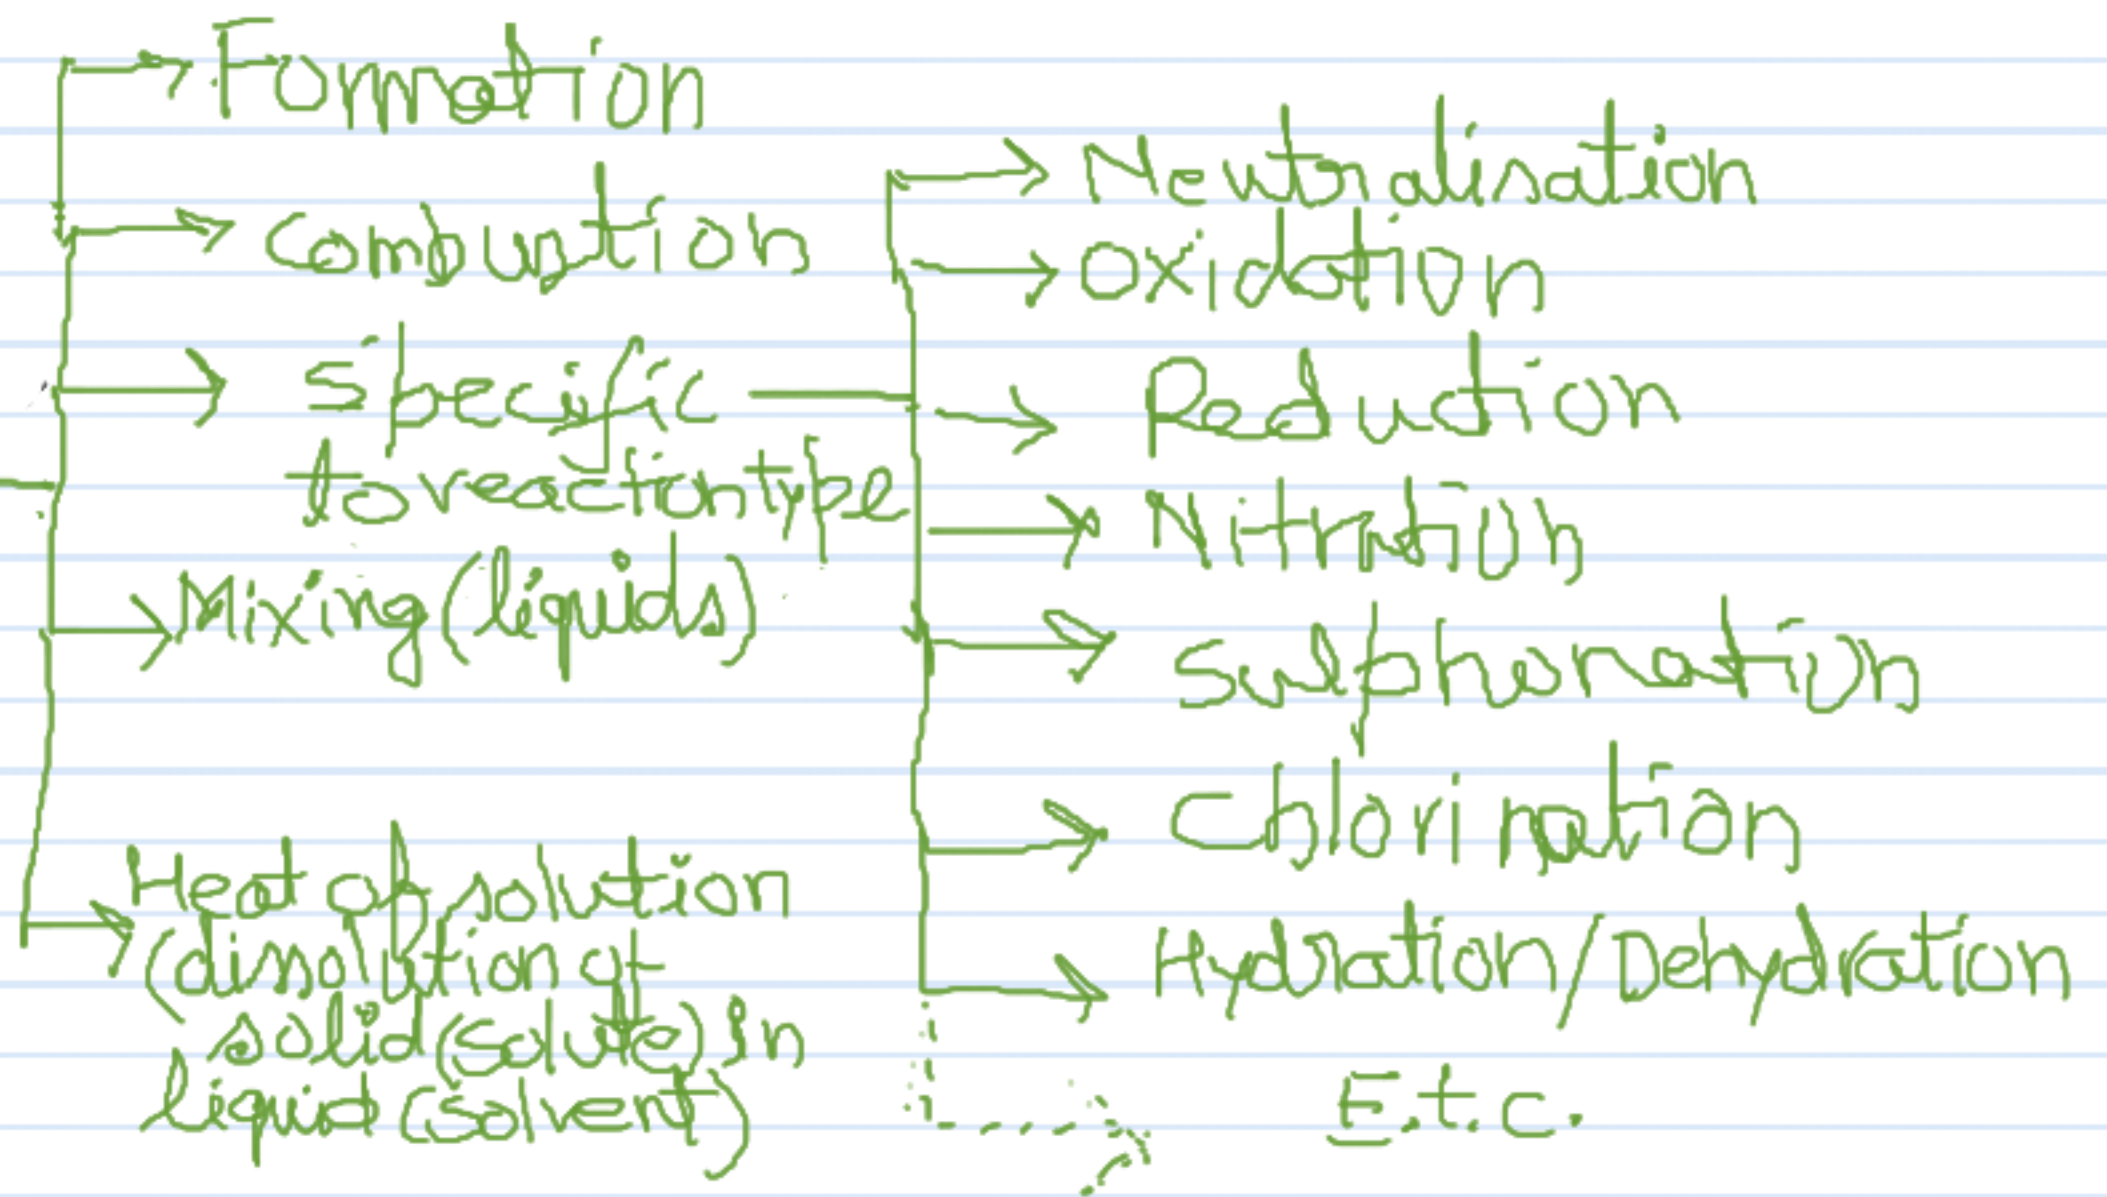 Formation
Combustion
Specific
to reaction type
Mixing (liquids)
Heat of solution
(dissolution of
solid (solute) in
liquid (solvent)
Neutralisation
Oxidation
Reduction
Nitration
Sulphonation
Chlorination
Hydration/Dehydration
E.t.c.